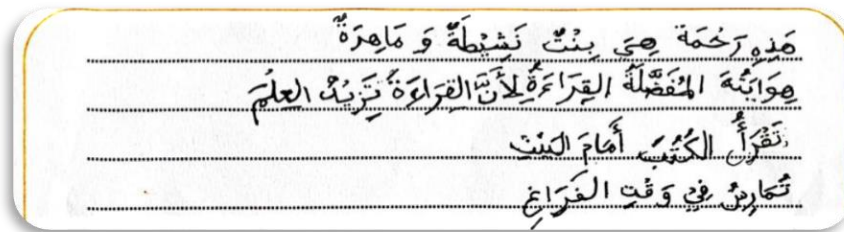 هَذِهِ رَحْمَة هِيَ بِنْتٌ نَشِيْطَةٌ وَ مَاهِرَةٌ
هِوَايَتُهَ المُفَضَّلَةُ القِرَاءَةُ لِأَنَّ القِرَاءَةَ تَزِيْدُ العِلْمَ
تَقْرَأُ الكُتُبَ أَمَامَ البَيْتِ
تُمَارِسُ فِيْ وَقْتِ الفَرَاغِ